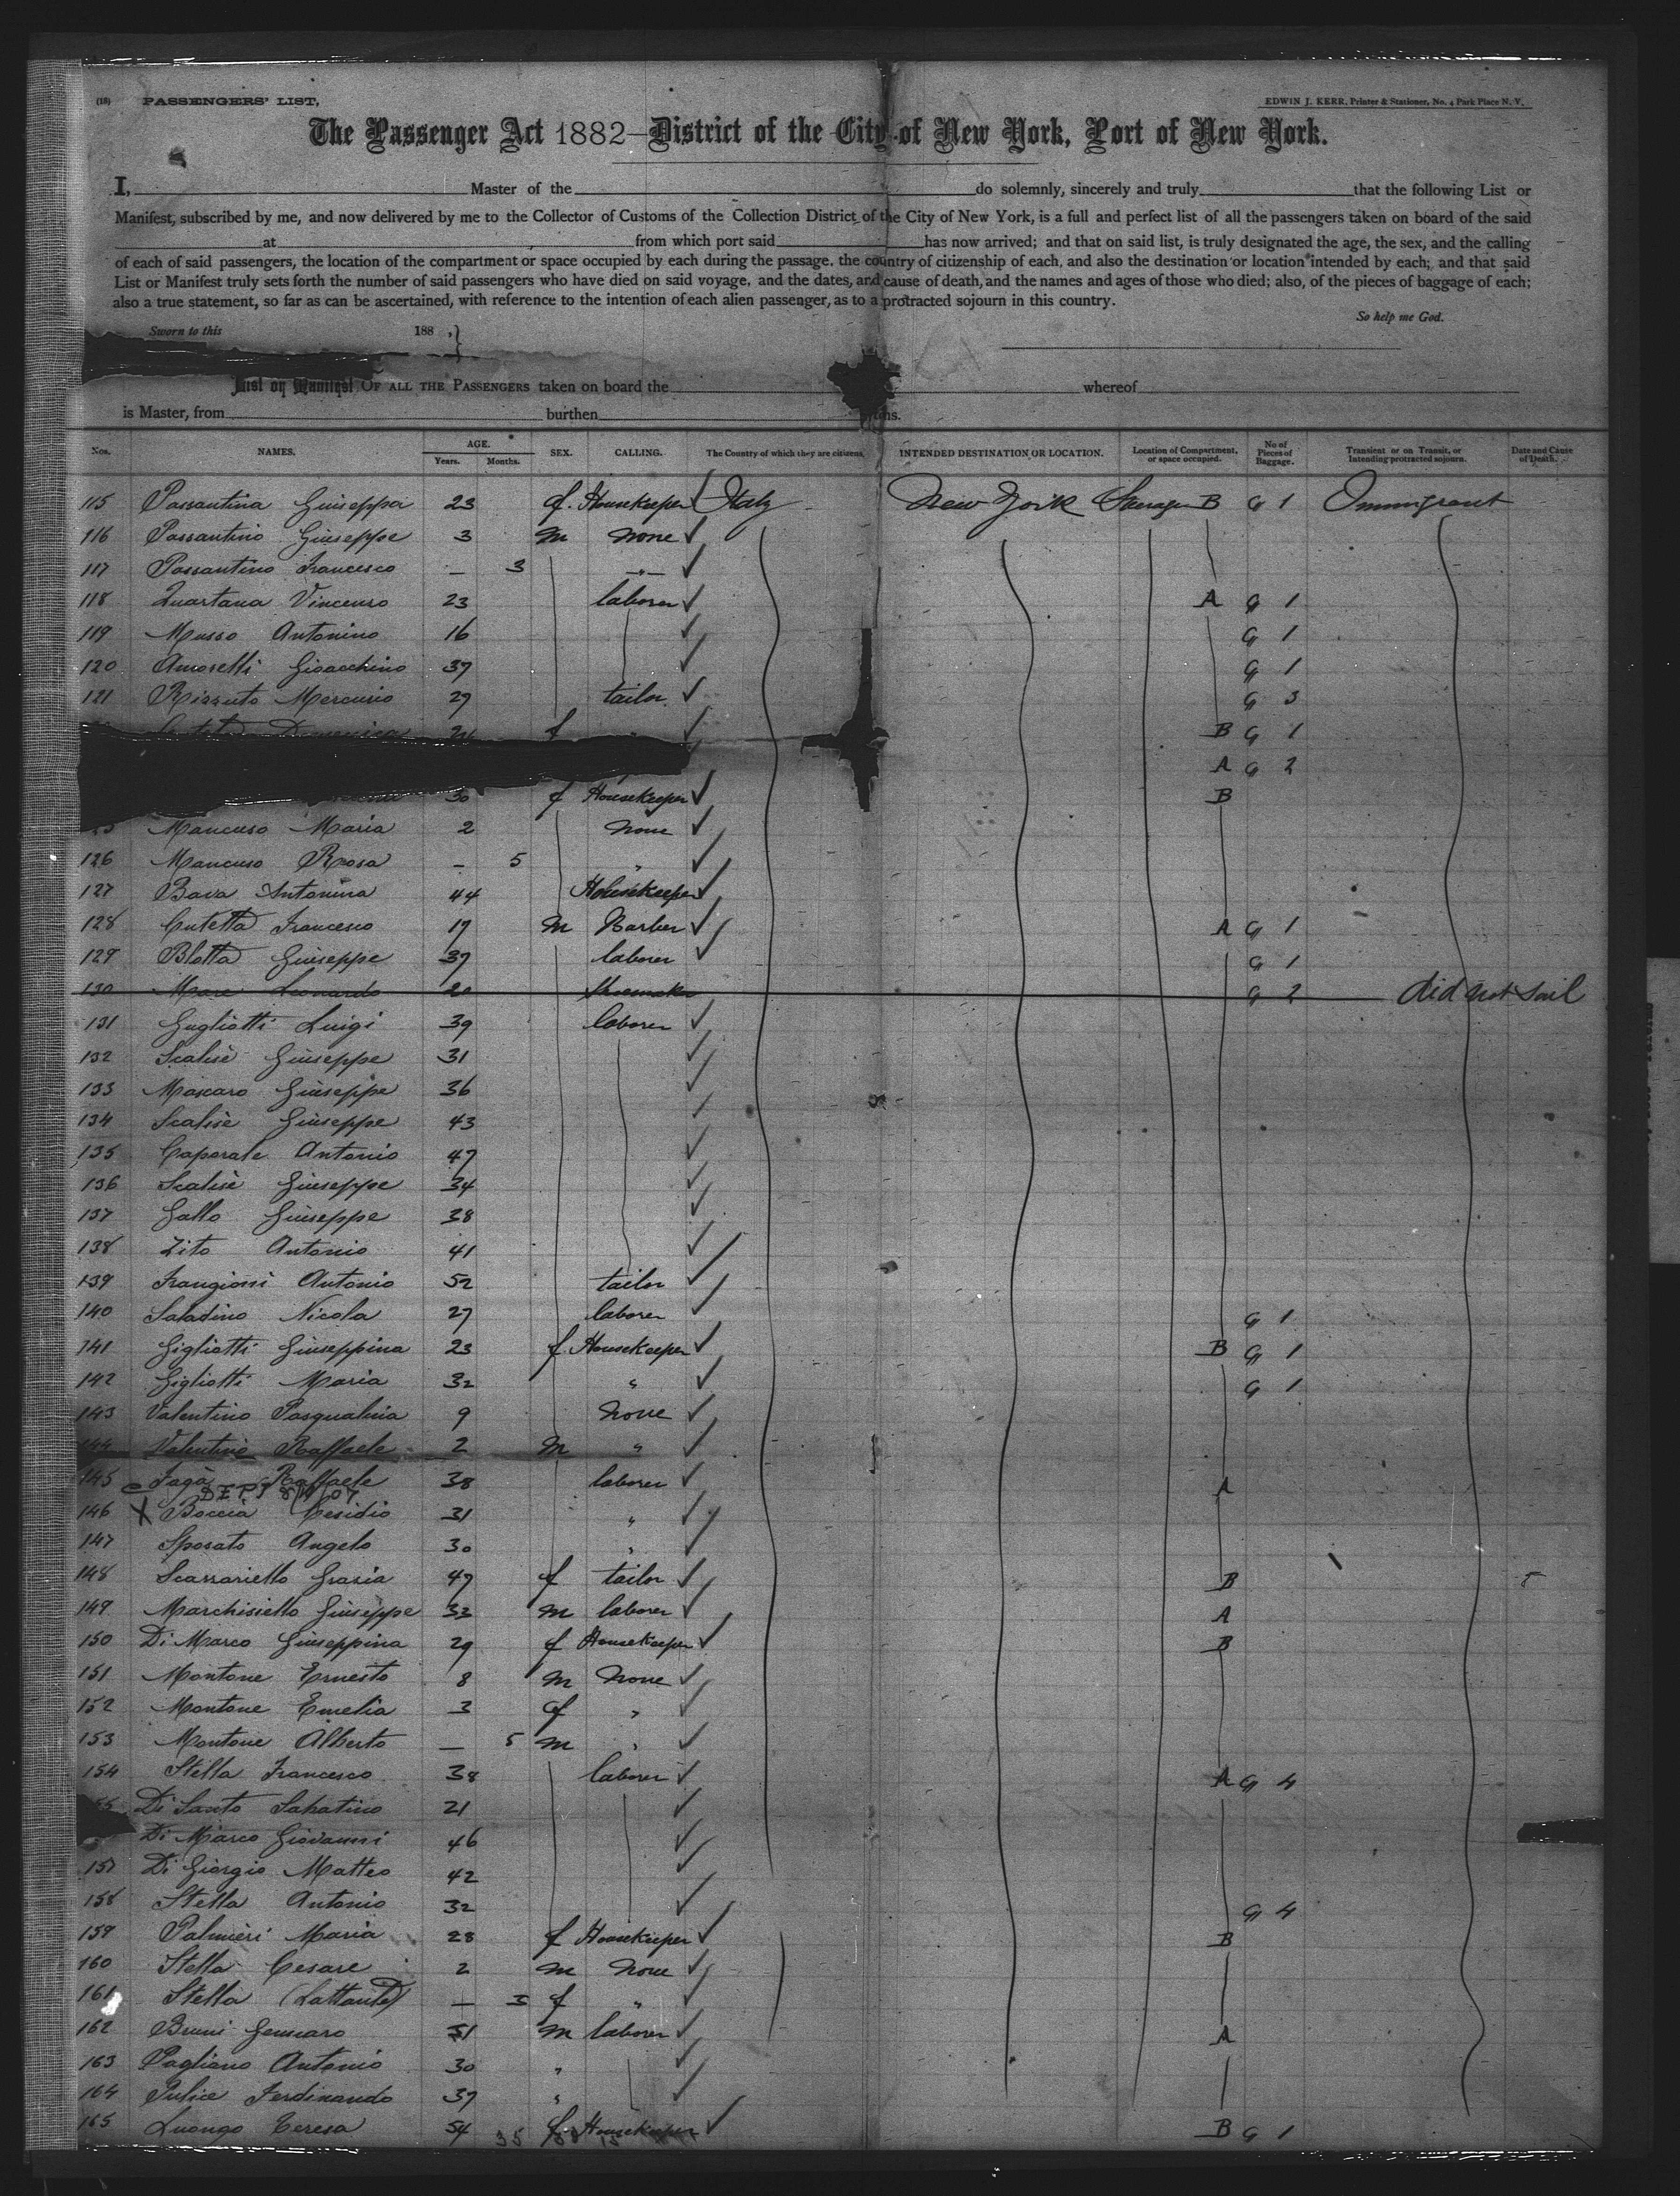 (18) PASSENGERS' LIST,
EDWIN J. KERR, Printer & Stationer, No. 4 Park Place N. Y.
The Passenger Act 1882—District of the City of New York, Port of New York.
I, Master of the do solemnly, sincerely and truly that the following List or
Manifest, subscribed by me, and now delivered by me to the Collector of Customs of the Collection District of the City of New York, is a full and perfect list of all the passengers taken on board of the said
at from which port said has now arrived; and that on said list, is truly designated the age, the sex, and the calling
of each of said passengers, the location of the compartment or space occupied by each during the passage, the country of citizenship of each, and also the destination or location intended by each; and that said
List or Manifest truly sets forth the number of said passengers who have died on said voyage, and the dates, and cause of death, and the names and ages of those who died; also, of the pieces of baggage of each;
also a true statement, so far as can be ascertained, with reference to the intention of each alien passenger, as to a protracted sojourn in this country.
So help me God.
Sworn to this 188 .}
List or Manifest OF ALL THE PASSENGERS taken on board the whereof
is Master, from burthen tons.
Nos. NAMES. AGE. Years. Months. SEX. CALLING. The Country of which they are citizens. INTENDED DESTINATION OR LOCATION. Location of Compartment, or space occupied. No of Pieces of Baggage. Transient or on Transit, or Intending protracted sojourn. Date and Cause of Death.
115 Passantina Giuseppa 23 f. Housekeeper Italy New York Steerage B G 1 Immigrant
116 Passantino Giuseppe 3 m none
117 Passantino Francesco — 3 —"—
118 Quartana Vincenzo 23 laborer A G 1
119 Musso Antonino 16 G 1
120 Amorelli Gioacchino 37 G 1
121 Rizzuto Mercurio 27 tailor G 3
f " B G 1
A G 2
30 f Housekeeper B
Mancuso Maria 2 none
126 Mancuso Rosa — 5 "
127 Bava Antonina 44 Housekeeper
128 Cutetta Francesco 19 m Barber A G 1
129 Blotta Giuseppe 37 laborer G 1
130 Mare Leonardo 20 shoemaker G 2 did not sail
131 Gugliotti Luigi 39 laborer
132 Scalise Giuseppe 31
133 Mascaro Giuseppe 36
134 Scalise Giuseppe 43
135 Caporale Antonio 47
136 Scalise Giuseppe 34
137 Gallo Giuseppe 38
138 Zito Antonio 41
139 Frangioni Antonio 52 tailor
140 Saladino Nicola 27 laborer G 1
141 Gigliotti Giuseppina 23 f Housekeeper B G 1
142 Gigliotti Maria 32 " G 1
143 Valentino Pasqualina 9 none
144 Valentino Raffaele 2 m "
145 Fagà Raffaele 38 laborer A
146 X Boccia Cesidio 31 "
147 Sposato Angelo 30 "
148 Scarrariello Grazia 47 f tailor B
149 Marchisiello Giuseppe 33 m laborer A
150 Di Marco Giuseppina 29 f Housekeeper B
151 Montone Ernesto 8 m none
152 Montone Emelia 3 f "
153 Montone Alberto — 5 m "
154 Stella Francesco 38 laborer A G 4
Di Santo Sabatino 21
Di Marco Giovanni 46
157 Di Giorgio Matteo 42
158 Stella Antonio 32 G 4
159 Palmieri Maria 28 f Housekeeper B
160 Stella Cesare 2 m none
161 Stella (Lattante) — 3 f "
162 Bruni Gennaro 51 m laborer A
163 Pagliano Antonio 30 "
164 Pulice Ferdinando 37 "
165 Luongo Teresa 54 f. Housekeeper B G 1